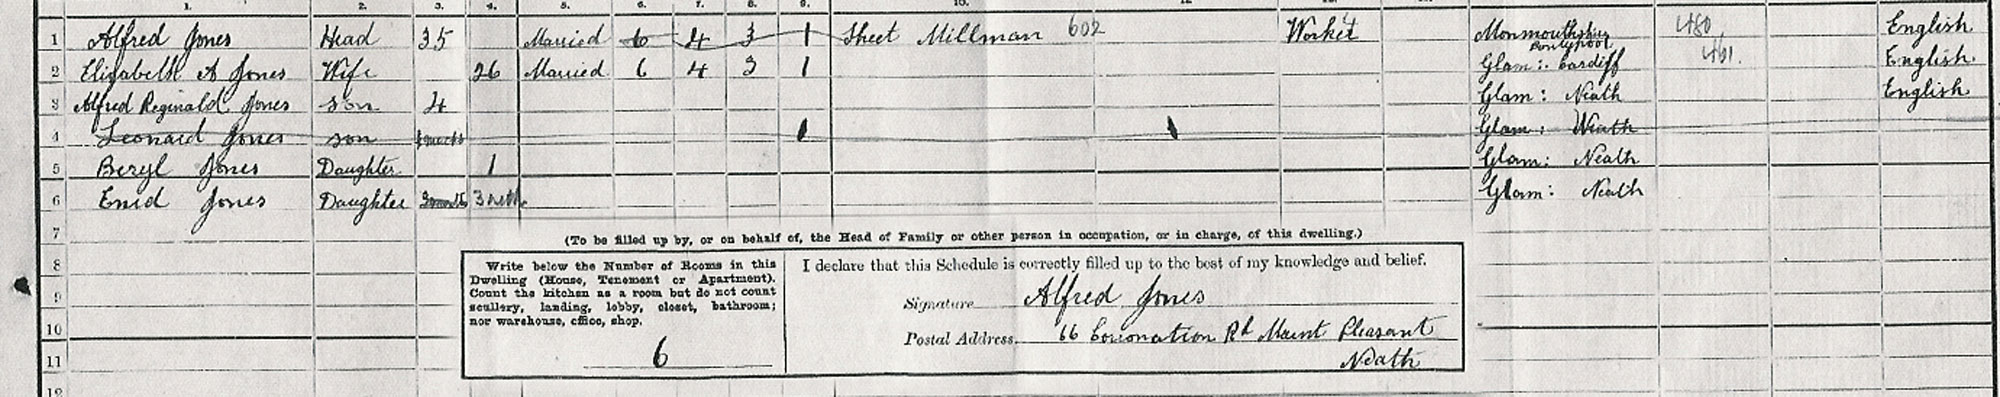 1. 2. 3. 4. 5. 6. 7. 8. 9. 10.
1 Alfred Jones Head 35 Married 6 4 3 1 Sheet Millman 602 Worker 4 Monmouthshire Pontypool 480 English
2 Elizabeth A Jones Wife 26 Married 6 4 3 1 Glam: Cardiff 491. English
3 Alfred Reginald Jones son 4 Glam: Neath English
4 Leonard Jones son Glam: Neath
5 Beryl Jones Daughter 1 Glam: Neath
6 Enid Jones Daughter 3 mth Glam: Neath
7
(To be filled up by, or on behalf of, the Head of Family or other person in occupation, or in charge, of this dwelling.)
8
9
10
11
12
Write below the Number of Rooms in this
Dwelling (House, Tenement or Apartment).
Count the kitchen as a room but do not count
scullery, landing, lobby, closet, bathroom;
nor warehouse, office, shop.
6
I declare that this Schedule is correctly filled up to the best of my knowledge and belief.
Signature Alfred Jones
Postal Address 66 Coronation Rd Mount Pleasant
Neath